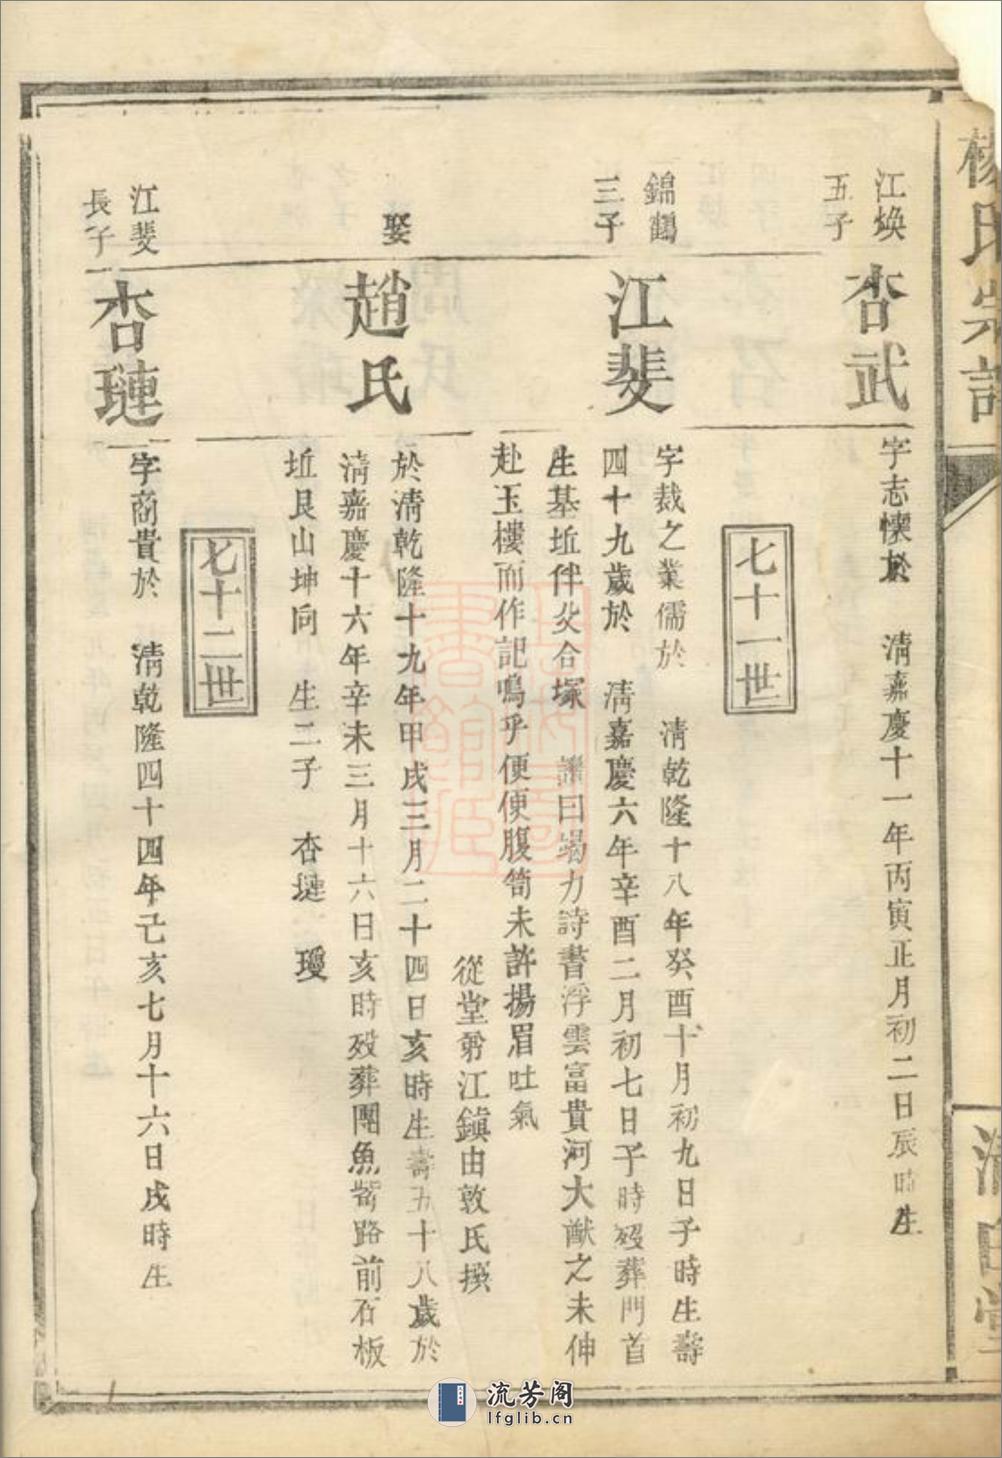 楊氏宗譜
清白堂
江煥
五子
杏武
字志懷於 清嘉慶十一年丙寅正月初二日辰時生
七十一世
錦鶴
三子
江斐
字裁之業儒於 清乾隆十八年癸酉十月初九日子時生壽
四十九歲於 清嘉慶六年辛酉二月初七日子時歿葬門首
生基坵伴父合塚 讚曰竭力詩書浮雲富貴河大猷之未伸
赴玉樓而作記嗚乎便便腹笥未許揚眉吐氣
從堂弟江鎮由敦氏撰
娶
趙氏
於清乾隆十九年甲戌三月二十四日亥時生壽五十八歲於
清嘉慶十六年辛未三月十六日亥時歿葬團魚嘴路前石板
坵艮山坤向 生二子 杏璉 瓊
七十二世
江斐
長子
杏璉
字商貴於 清乾隆四十四年己亥七月十六日戌時生
流芳阁
lfglib.cn